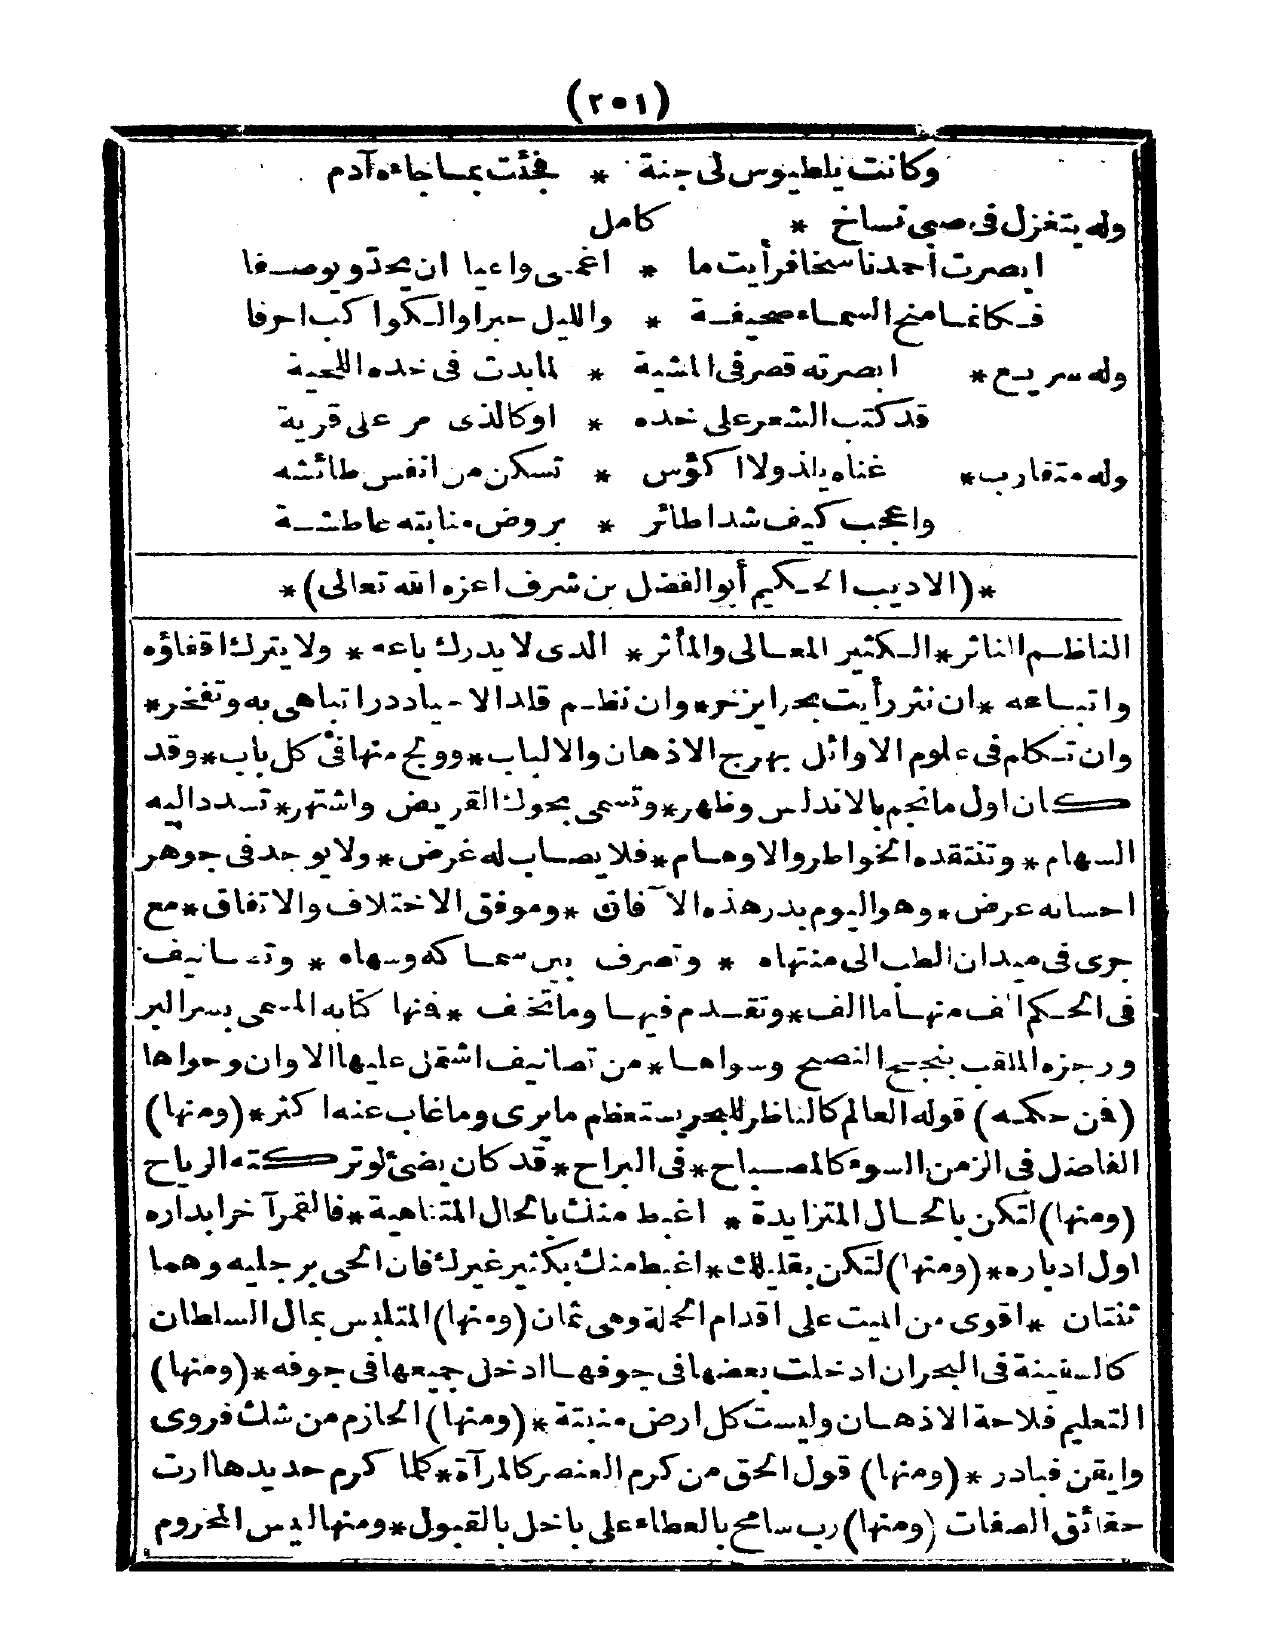 (٢٥١)
وكانت بلطيوس لى جنة * فجئت بما جاءه آدم
وله يتغزل فى صبى نساخ * كامل
ابصرت أحمد ناسخا فرأيت ما * اعمى واعيا ان يحذو يوصفا
فكانما منح السماء صحيفة * والليل حبرا والكواكب احرفا
وله سريع * ابصرته قصر فى المشية * لما بدت فى خده اللحية
قد كتب الشعر على خده * اوكالذى مر على قرية
وله متقارب * غناء يلذ ولا اكؤس * تسكن من انفس طائشه
واعجب كيف شدا طائر * بروض منابته عاطشة
*(الاديب الحكيم أبو الفضل بن شرف اعزه الله تعالى)*
الناظم الناثر * الكثير المعالى والمأثر * الذى لا يدرك باعه * ولا يترك اقفاؤه
واتباعه * ان نثر رأيت بحرا يزخر * وان نظم قلد الاجياد درا تباهى به وتفخر *
وان تكلم فى علوم الاوائل بهرج الاذهان والالباب * وولج منها فى كل باب * وقد
كان اول ما نجم بالاندلس وظهر * وتسمى بحوك القريض واشتهر * تسدد اليه
السهام * وتنتقده الخواطر والاوهام * فلا يصاب له غرض * ولا يوجد فى جوهر
احسانه عرض * وهو اليوم بدر هذه الآفاق * وموفق الاختلاف والاتفاق * مع
جرى فى ميدان الطب الى منتهاه * وتصرف بين سماكه وسهاه * وتصانيف
فى الحكم الف منها ما الف * وتقدم فيها وما تخلف * فنها كتابه المسمى بسر البر
ورجزه الملقب بنجح النصح وسواهما * من تصانيف اشتمل عليها الاوان وحواها
(فن حكمه) قوله العالم كالناظر للبحر يستعظم ما يرى وما غاب عنه اكثر * (ومنها)
الفاضل فى الزمن السوء كالمصباح * فى البراح * قد كان يضئ لو تركته الرياح
(ومنها) لتكن بالحال المتزايدة * اغبط منك بالحال المتناهية * فالقمر آخر ابداره
اول ادباره * (ومنها) لتكن بقليلك * اغبط منك بكثير غيرك فان الحى برجليه وهما
ثنتان * اقوى من الميت على اقدام الحملة وهى ثمان (ومنها) المتلبس بمال السلطان
كالسفينة فى البحر ان ادخلت بعضها فى جوفها ادخل جميعها فى جوفه * (ومنها)
التعليم فلاحة الاذهان وليست كل ارض منبتة * (ومنها) الحازم من شك فروى
وايقن فبادر * (ومنها) قول الحق من كرم العنصر كالمرآة * كلما كرم حديدها ارت
حقائق الصفات (ومنها) رب سامح بالعطاء على باخل بالقبول * ومنها ليس المحروم